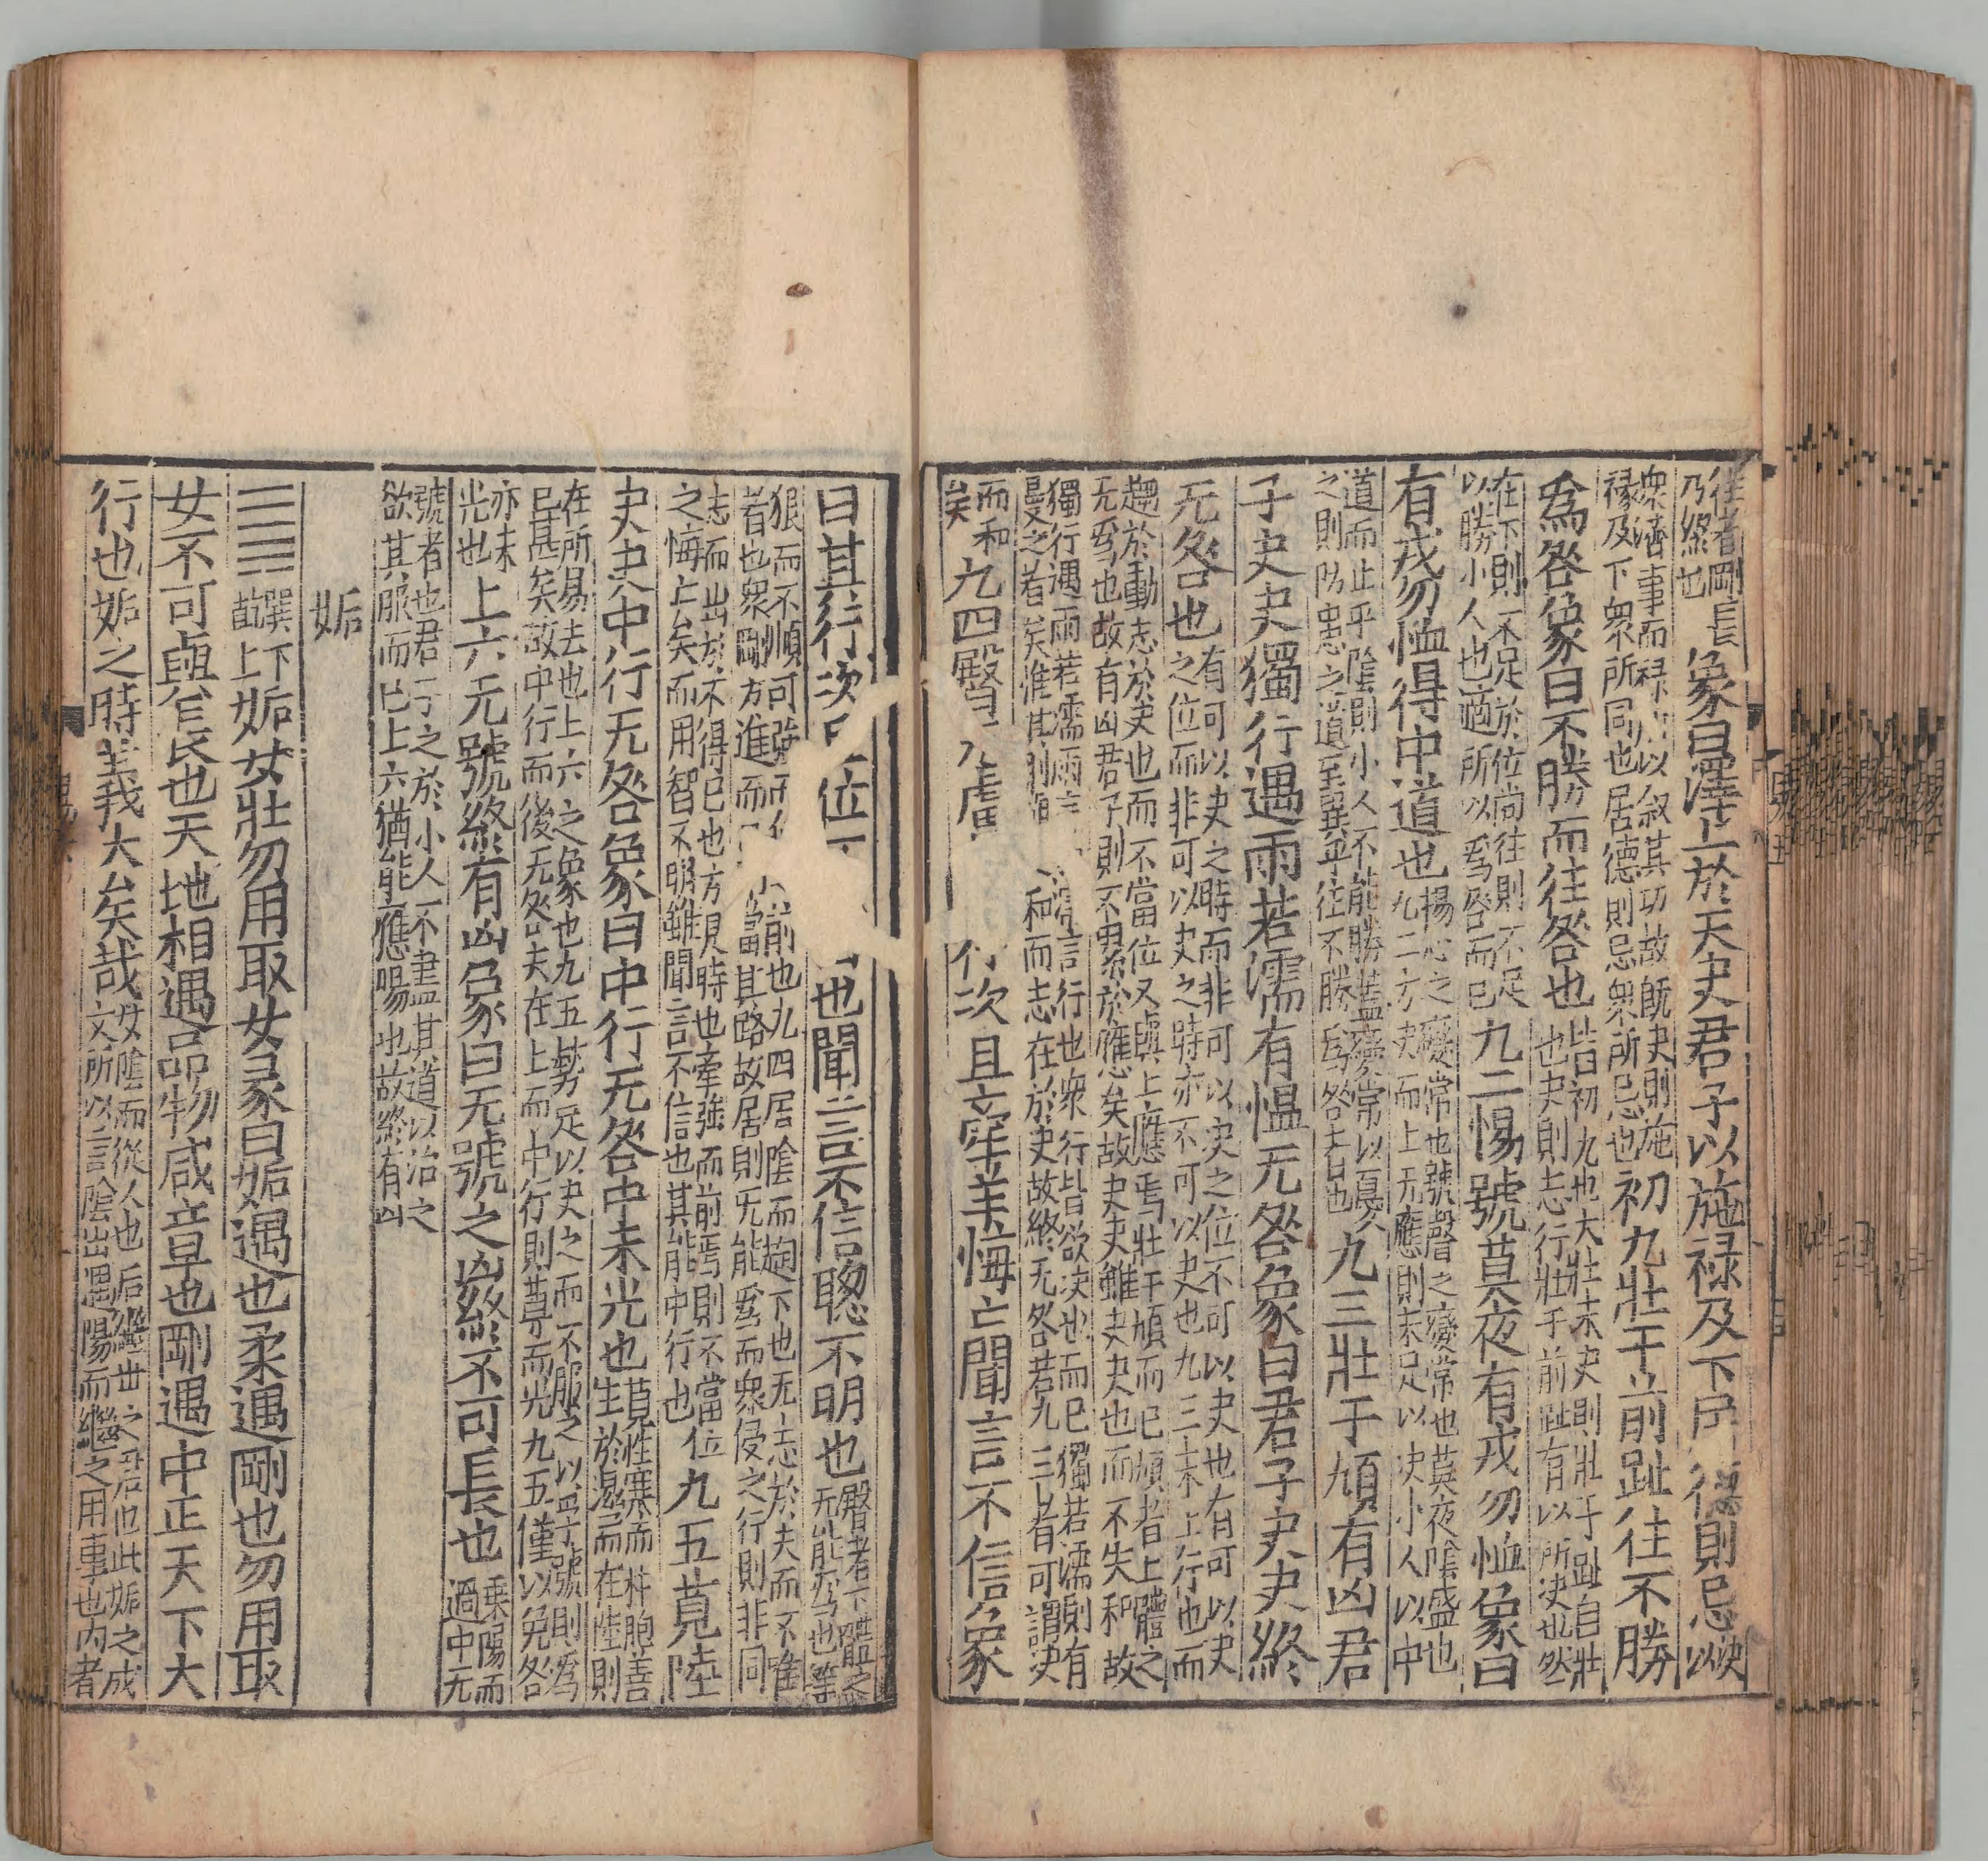 往者剛長
乃終也
象曰澤上於天夬君子以施禄及下居德則忌
夬以
衆濟事而禄 以叙其功故旣夬則施
禄及下衆所同也居德則忌衆所忌也
初九壯于前趾往不勝
爲咎象曰不勝而往咎也
皆初九也大壯未夬則壯于趾自壯
也夬則志行壯于前趾有以所決也然
在下則不足於位尚往則不足
以勝小人也適所以爲咎而已
九二惕號莫夜有戎勿恤象曰
有戎勿恤得中道也
惕心之變常也號聲之變常也莫夜陰盛也
九二方夬而上无應則未足以決小人以中
道而止乎陰則小人不能勝蓋變常以憂
之則防患之道至巽乎往不勝爲咎者也
九三壯于頄有凶君
子夬夬獨行遇雨若濡有慍无咎象曰君子夬夬終
无咎也
有可以夬之時而非可以決之位不可以夬也有可以夬
之位而非可以夬之時亦不可以夬也九三未上行也而
趨於動志於夬也而不當位又與上應焉壯于頄而已頄者上體之
无爲也故有凶君子則不累於應矣故夬夬雖夬夬也而不失和故
獨行遇雨若濡雨 濡言行也衆行皆欲決也而已獨若濡則有
慢之者矣惟其則 和而志在於夬故終无咎若九三者可謂決
而和
矣
九四臀无膚 行次且牽羊悔亡聞言不信象
曰其行次 位 也聞言不信聰不明也
臀者下體之
无能爲也羊
狠而不順可 前也九四居陰而趨下也无志於夬而不唯
者也衆剛方進而 當其路故居則无能爲而衆侵之行則非同
志而出於不得已也方夬時也牽強而前焉則不當位
之悔亡矣而用智不明雖聞言不信也其能中行也
九五莧陸
夬夬中行无咎象曰中行无咎中未光也
莧性寒而柎胞善
生於濕而在陸則
在所易去也上六之象也九五勢足以夬之而不服之以孚號則爲
已甚矣故中行而後无咎夫在上而中行則尊而光九五僅以免咎
亦未
光也
上六无號終有凶象曰无號之凶終不可長也
乗陽而
過中无
號者也君子之於小人不盡其道以治之
欲其服而已上六猶能應陽也故終有凶
姤
巽下
乾上
姤女壯勿用取女彖曰姤遇也柔遇剛也勿用取
女不可與長也天地相遇品物咸章也剛遇中正天下大
行也姤之時義大矣哉
女陰而從人也后繼世之君也此姤之成
文所以言陰出遇陽而繼之用事也内者